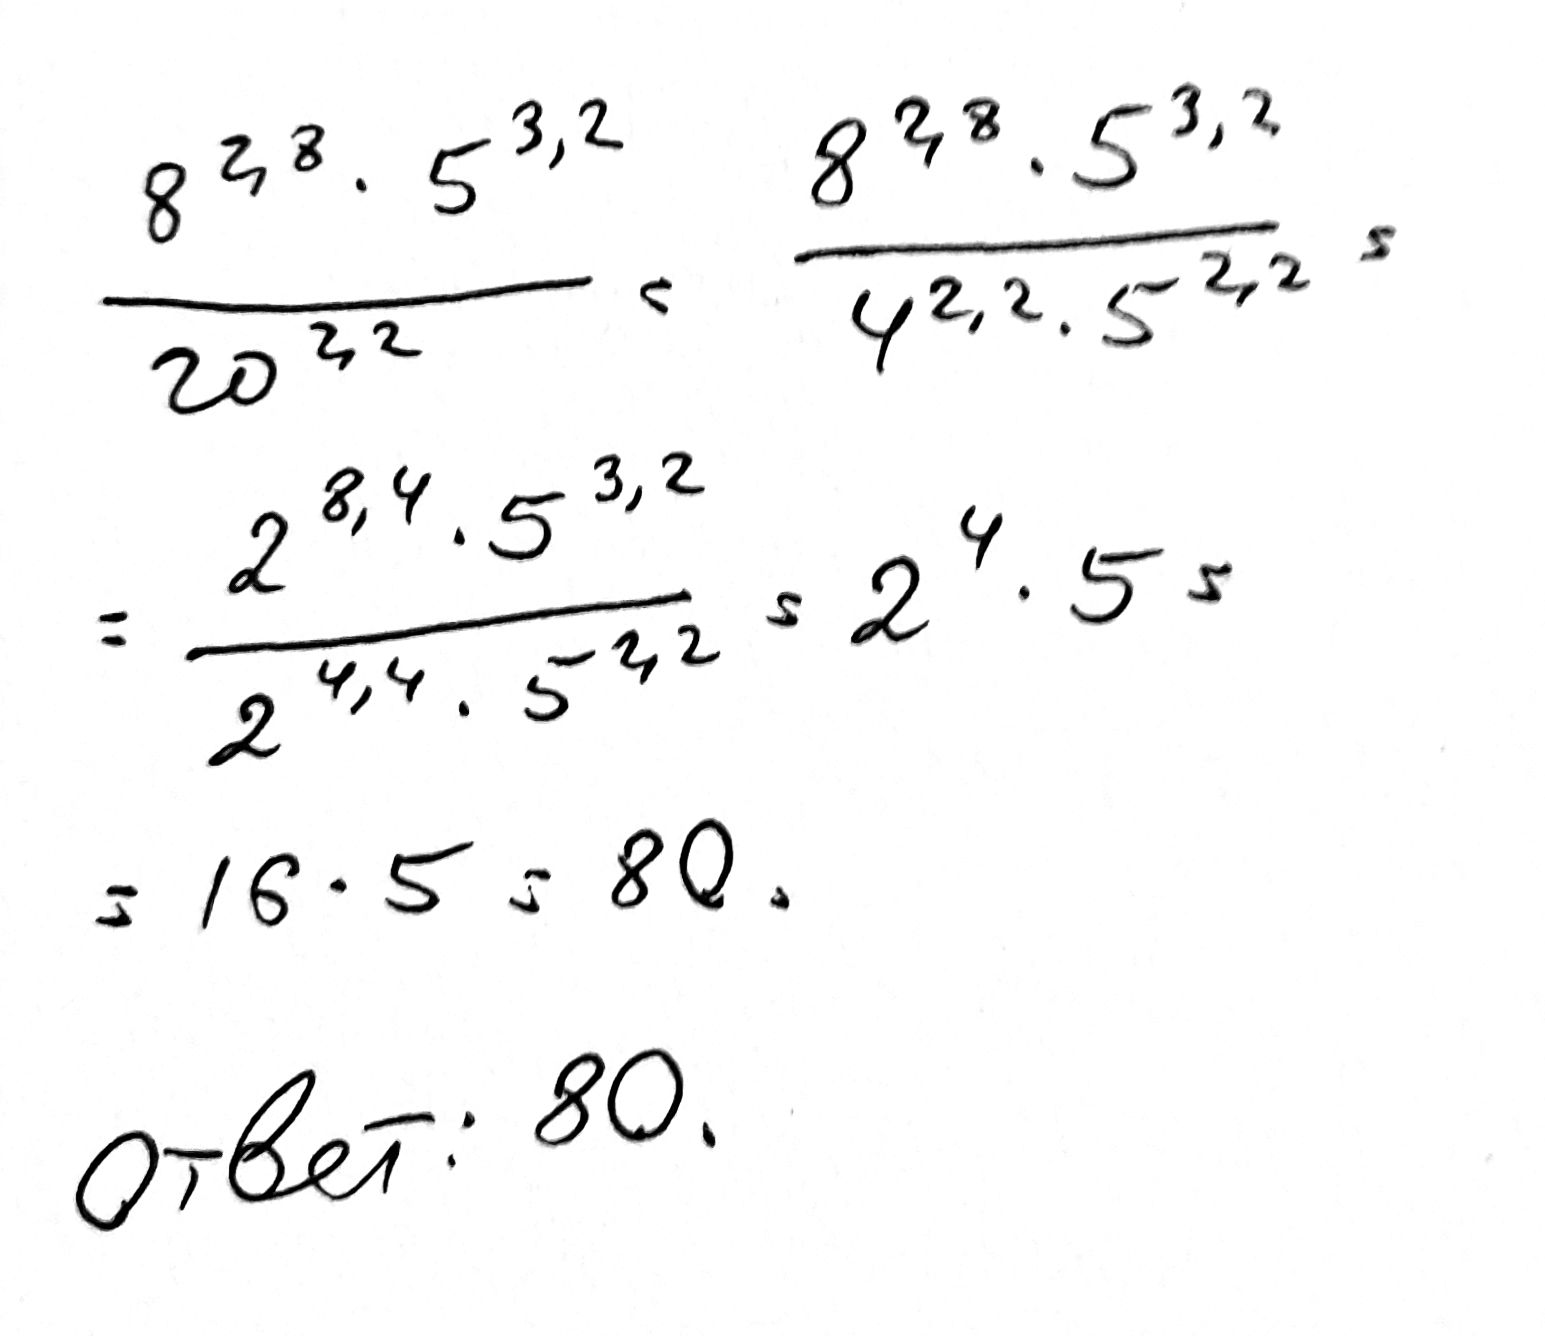 8^2,8 · 5^3,2 / 20^2,2 = 8^2,8 · 5^3,2 / 4^2,2 · 5^2,2 =
= 2^8,4 · 5^3,2 / 2^4,4 · 5^2,2 = 2^4 · 5 =
= 16 · 5 = 80.
Ответ: 80.